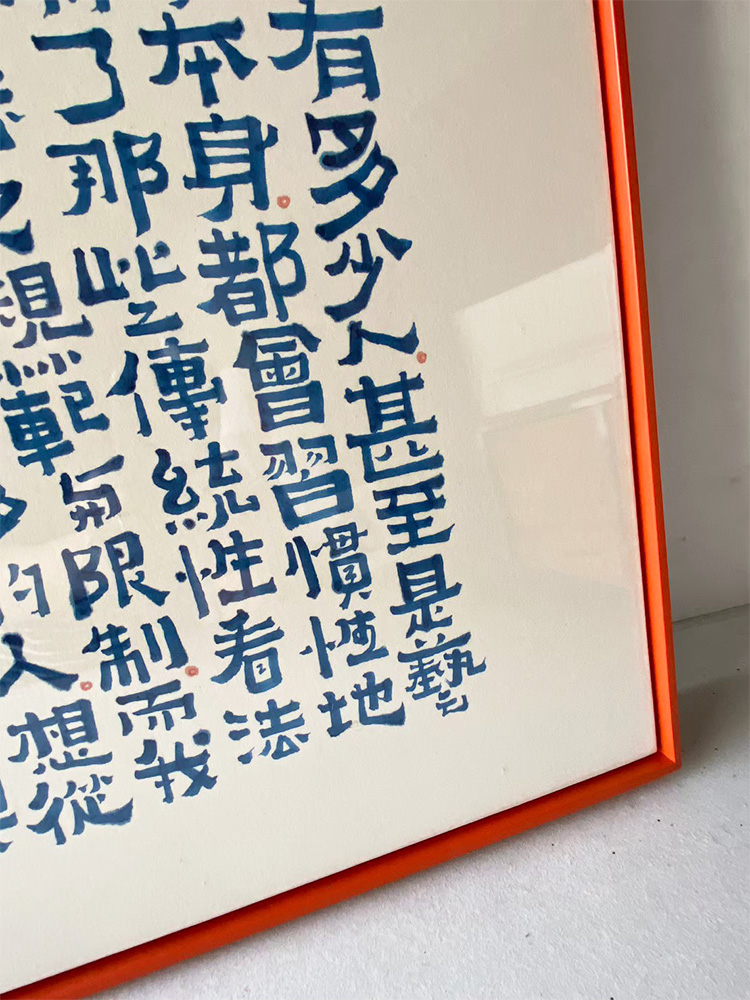 有多少人。甚至是藝
本身。都會習慣性地
了那些傳統性看法
規範限制。而我
的人。想從